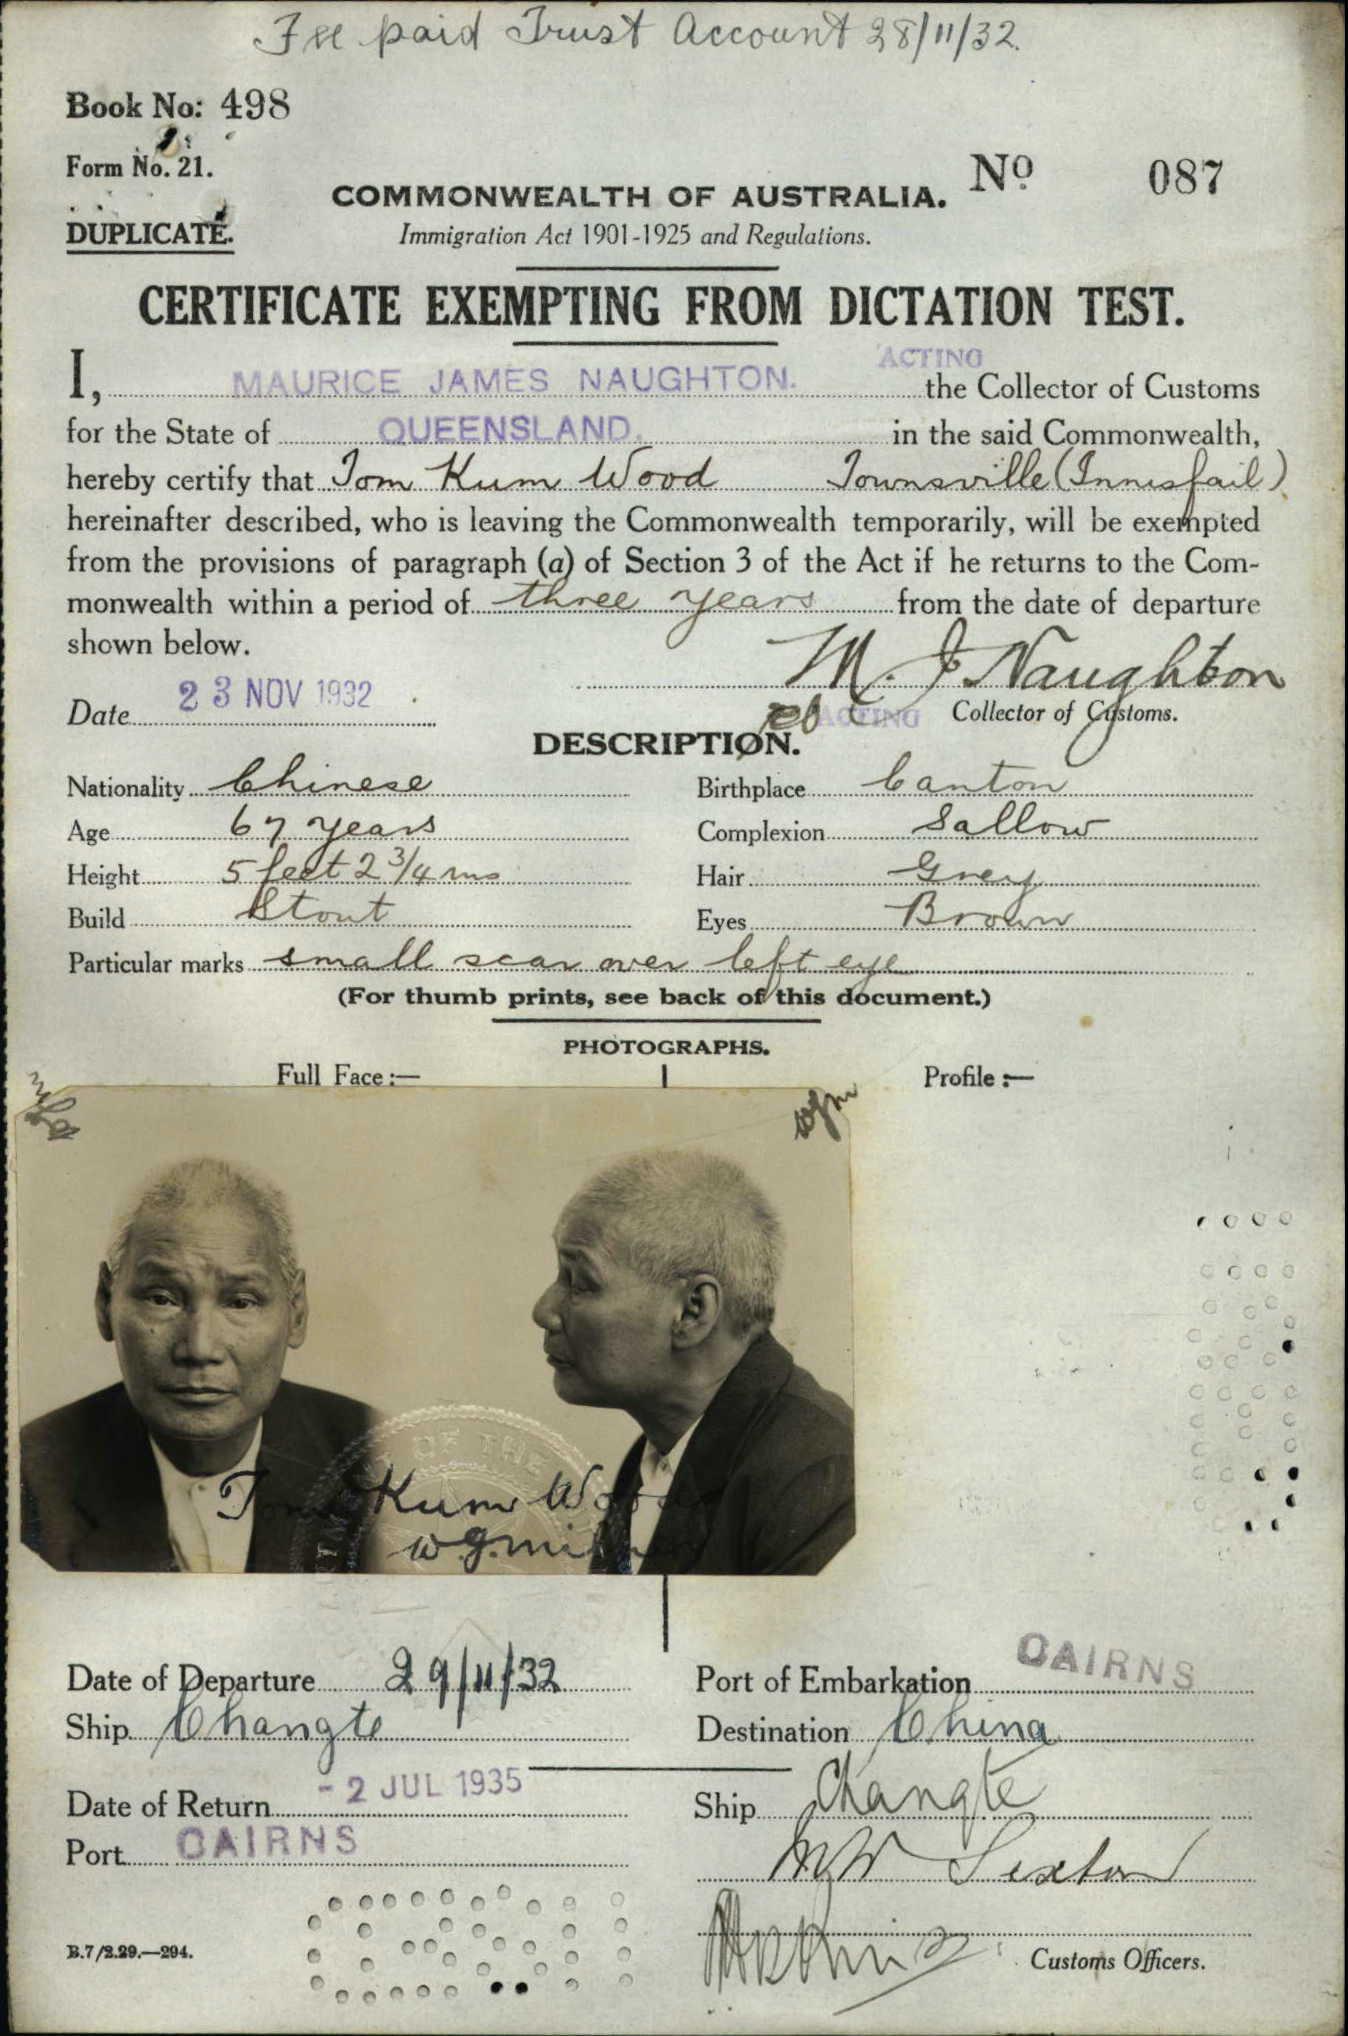 Fee paid Trust Account 28/11/32.
Book No: 498
Form No. 21.
No 087
COMMONWEALTH OF AUSTRALIA.
DUPLICATE.
Immigration Act 1901-1925 and Regulations.
CERTIFICATE EXEMPTING FROM DICTATION TEST.
ACTING
I, MAURICE JAMES NAUGHTON. the Collector of Customs
for the State of QUEENSLAND. in the said Commonwealth,
hereby certify that Tom Kum Wood Townsville (Innisfail)
hereinafter described, who is leaving the Commonwealth temporarily, will be exempted
from the provisions of paragraph (a) of Section 3 of the Act if he returns to the Com-
monwealth within a period of three years from the date of departure
shown below.
M. J. Naughton
Date 23 NOV 1932
ACTING Collector of Customs.
DESCRIPTION.
Nationality Chinese Birthplace Canton
Age 67 years Complexion Sallow
Height 5 feet 2 3/4 ins Hair Grey
Build Stout Eyes Brown
Particular marks small scar over left eye
(For thumb prints, see back of this document.)
PHOTOGRAPHS.
Full Face :— Profile :—
wgm
Tom Kum Wood
W.G.
OF THE
Date of Departure 29/11/32 Port of Embarkation CAIRNS
Ship Changte Destination China
Date of Return - 2 JUL 1935 Ship Changte
Port CAIRNS
Sexton
B.7/2.29.—294.
Customs Officers.